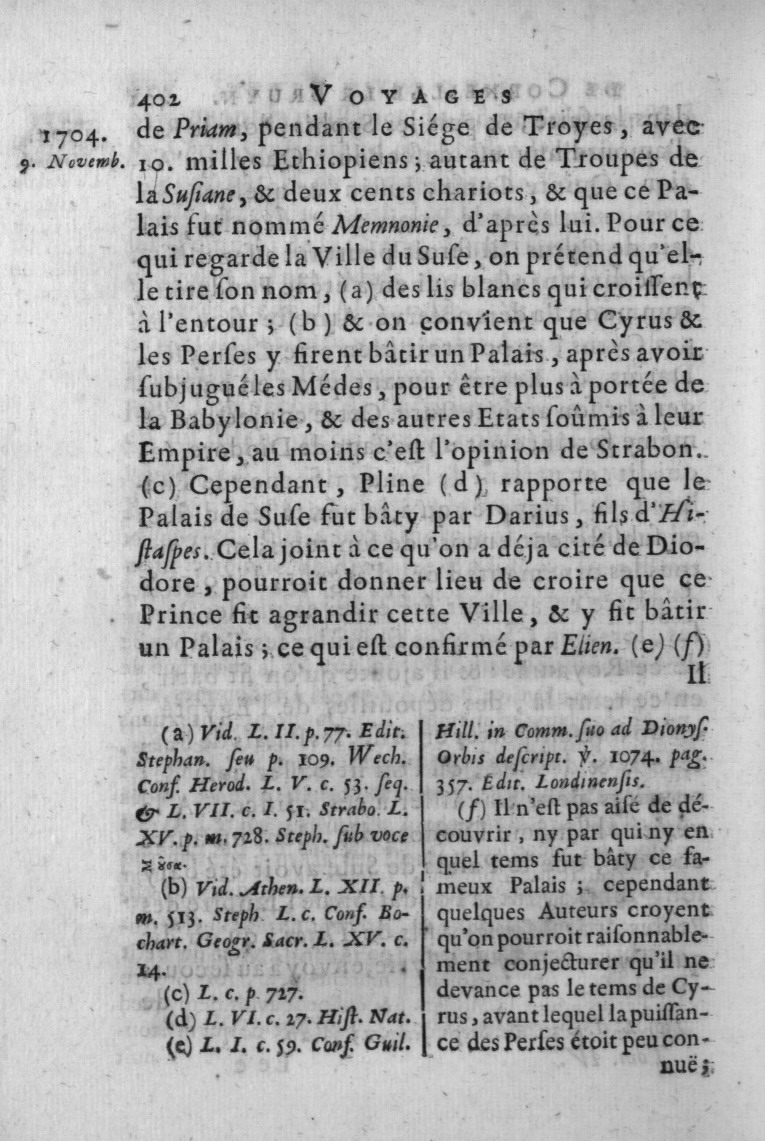 402 VOYAGES
1704.
9. Novemb.
de Priam, pendant le Siége de Troyes, avec
10. milles Ethiopiens; autant de Troupes de
la Susiane, & deux cents chariots, & que ce Pa-
lais fut nommé Memnonie, d'après lui. Pour ce
qui regarde la Ville du Suse, on prétend qu'el-
le tire ſon nom, (a) des lis blancs qui croiſſent
à l'entour; (b) & on convient que Cyrus &
les Perſes y firent bâtir un Palais, après avoir
ſubjugué les Médes, pour être plus à portée de
la Babylonie, & des autres Etats ſoûmis à leur
Empire, au moins c'eſt l'opinion de Strabon.
(c) Cependant, Pline (d) rapporte que le
Palais de Suſe fut bâty par Darius, fils d'Hi-
ſtaſpes. Cela joint à ce qu'on a déja cité de Dio-
dore, pourroit donner lieu de croire que ce
Prince fit agrandir cette Ville, & y fit bâtir
un Palais; ce qui eſt confirmé par Elien. (e) (f)
Il
(a) Vid. L. II. p. 77. Edit.
Stephan. ſeu p. 109. Wech.
Conf. Herod. L. V. c. 53. ſeq.
& L. VII. c. I. 51. Strabo. L.
XV. p. m. 728. Steph. ſub voce
(b) Vid. Athen. L. XII. p.
m. 513. Steph. L. c. Conf. Bo-
chart. Geogr. Sacr. L. XV. c.
14.
(c) L. c. p. 727.
(d) L. VI. c. 27. Hiſt. Nat.
(e) L. I. c. 59. Conf. Guil.
Hill. in Comm. ſuo ad Dionyſ.
Orbis deſcript. ℣. 1074. pag.
357. Edit. Londinenſis.
(f) Il n'eſt pas aiſé de dé-
couvrir, ny par qui ny en
quel tems fut bâty ce fa-
meux Palais; cependant
quelques Auteurs croyent
qu'on pourroit raiſonnable-
ment conjecturer qu'il ne
devance pas le tems de Cy-
rus, avant lequel la puiſſan-
ce des Perſes étoit peu con-
nuë;